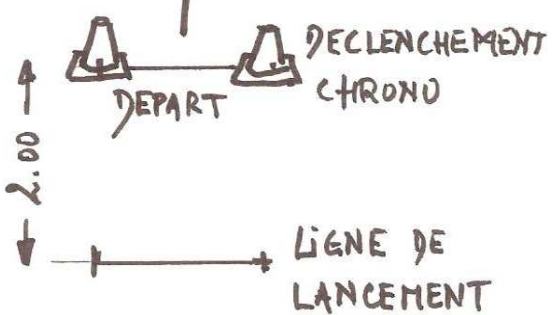 DECLENCHEMENT
CHRONO
DEPART
2.00
LIGNE DE
LANCEMENT